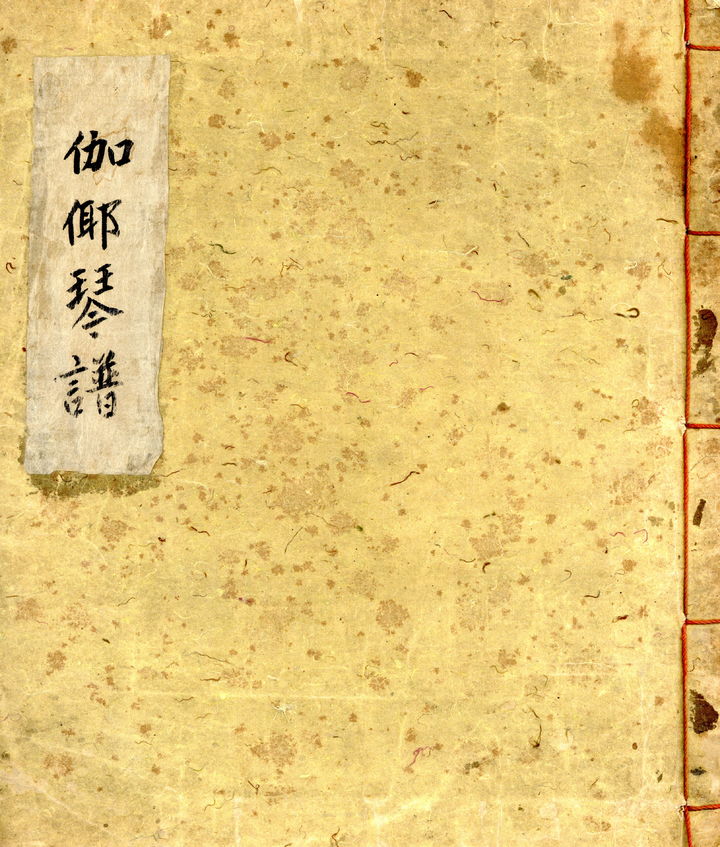 伽倻琴譜